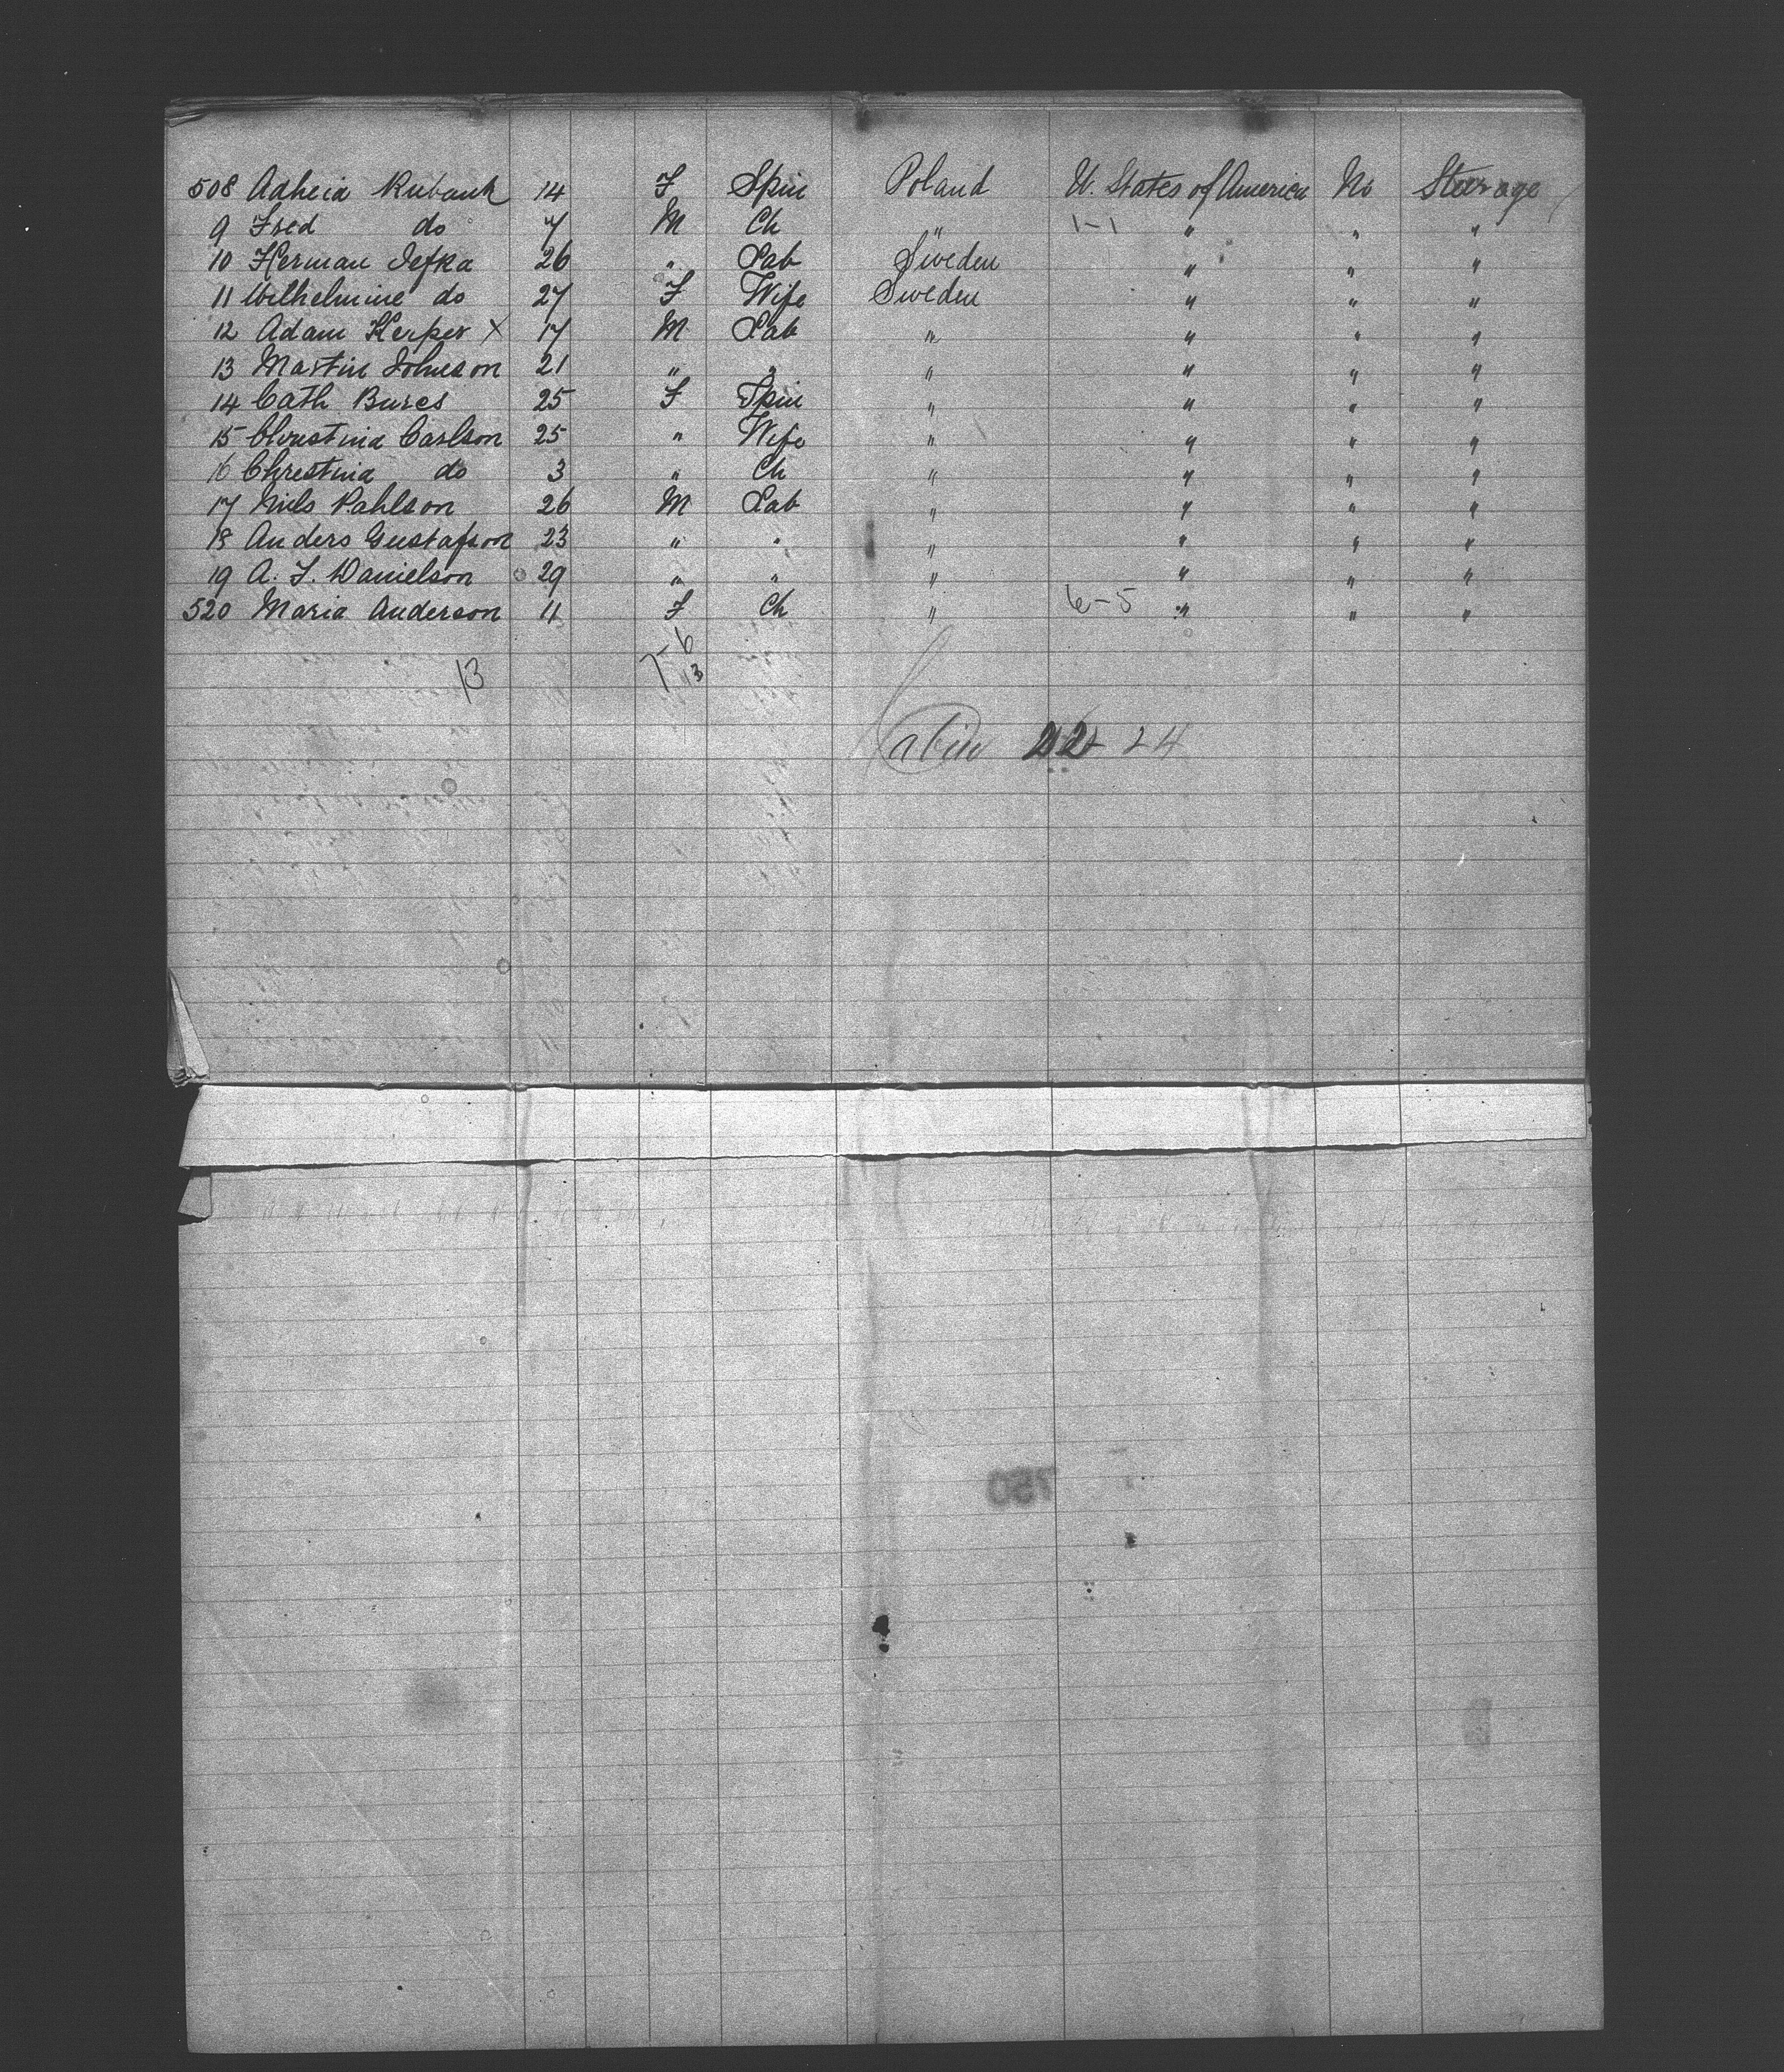 508 Adheia Rubank 14 F Spin Poland U. States of America No Steerage
9 Fred do 7 M Ch " 1-1 " " "
10 Herman Jefka 26 " Lab Sweden " " "
11 Wilhelmine do 27 F Wife Sweden " " "
12 Adam Kerper X 17 M Lab " " " "
13 Martin Johnson 21 " " " " " "
14 Cath Bures 25 F Spin " " " "
15 Christina Carlson 25 " Wife " " " "
16 Chrestina do 3 " Ch " " " "
17 Nils Pahlson 26 M Lab " " " "
18 Anders Gustafson 23 " " " " " "
19 A. F. Danielson 29 " " " " " "
520 Maria Anderson 11 F Ch " 6-5 " " "
13 7-6
13
Cabin 22 24
750